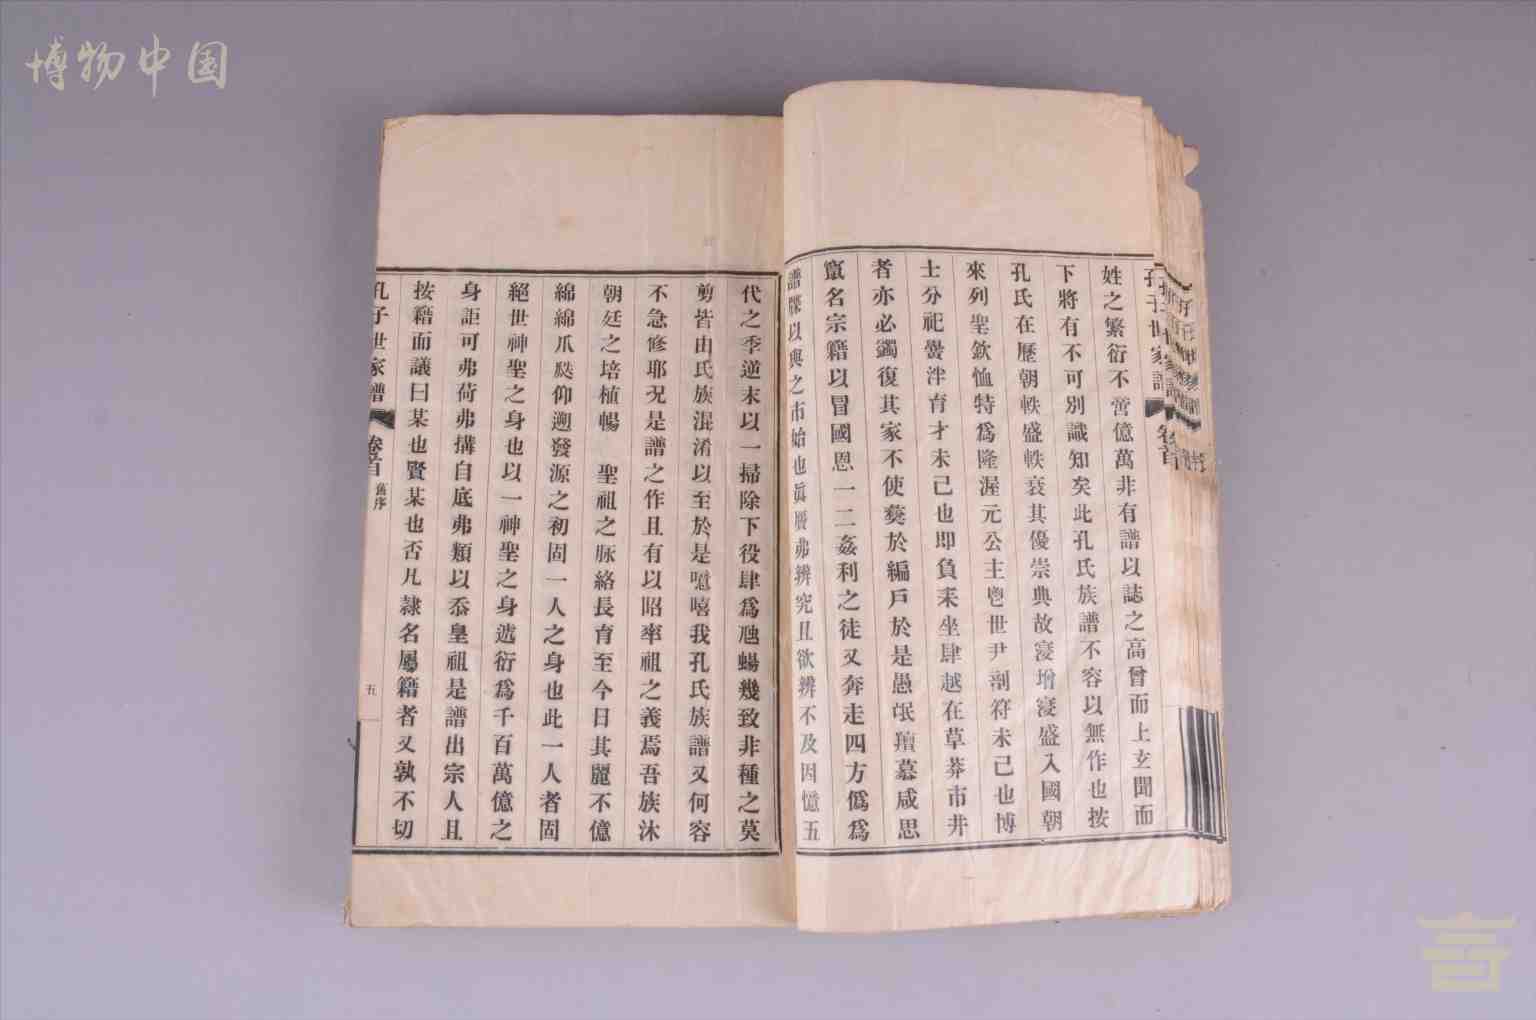 博物中国
孔子世家譜
卷首
姓之繁衍不啻億萬非有譜以誌之高曾而上玄聞而
下將有不可別識知矣此孔氏族譜不容以無作也按
孔氏在歷朝帙盛帙衰其優崇典故寖增寖盛入國朝
來列聖欽恤特爲隆渥元公主鬯世尹剖符未已也博
士分祀黌泮育才未已也即負耒坐肆越在草莽市井
者亦必蠲復其家不使嬈於編戶於是愚氓羶慕咸思
竄名宗籍以冒國恩一二姦利之徒又奔走四方僞爲
譜牒以與之市始也眞贗弗辨究且欲辨不及因憶五
代之季逆末以一掃除下役肆爲虺蜴幾致非種之莫
剪皆由氏族混淆以至於是噫嘻我孔氏族譜又何容
不急修耶况是譜之作且有以昭率祖之義焉吾族沐
朝廷之培植暢　聖祖之脉絡長育至今日其麗不億
綿綿瓜瓞仰遡發源之初固一人之身也此一人者固
絕世神聖之身也以一神聖之身遞衍爲千百萬億之
身詎可弗荷弗搆自底弗類以忝皇祖是譜出宗人且
按籍而議曰某也賢某也否凡隸名屬籍者又孰不切
孔子世家譜
卷首
舊序
五